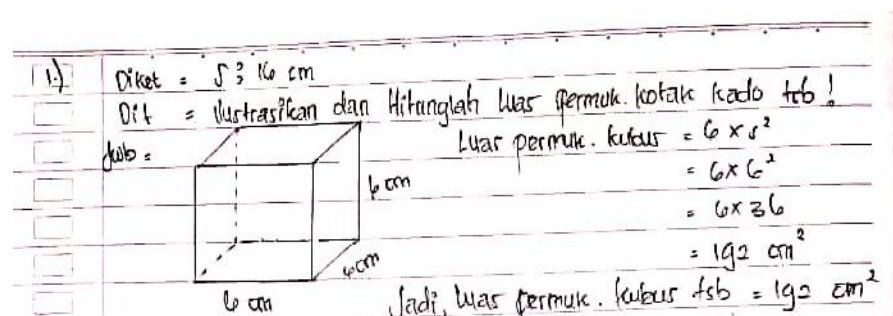 1.) Diket = S : 16 cm
Dit = Ilustrasikan dan Hitunglah luas permuk. kotak kado tsb!
Jwb =
Luas permuk. kubus = 6 x s²
= 6 x 6²
= 6 x 36
= 192 cm²
6 cm
6 cm
6 cm
Jadi, luas permuk. kubus tsb = 192 cm²